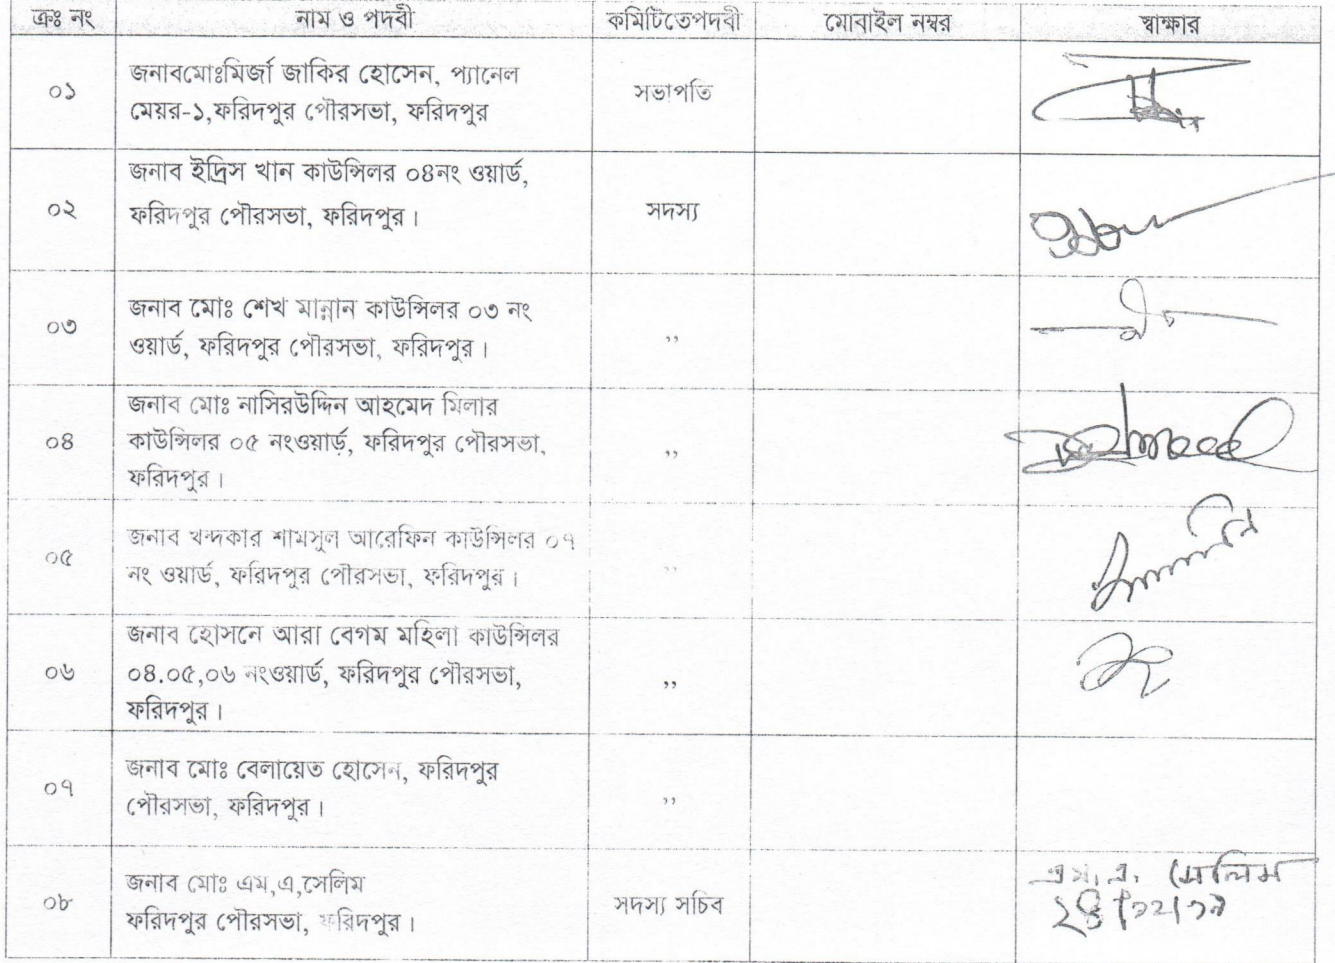 ক্রঃ নং নাম ও পদবী কমিটিতেপদবী মোবাইল নম্বর স্বাক্ষার
০১ জনাবমোঃমির্জা জাকির হোসেন, প্যানেল
মেয়র-১,ফরিদপুর পৌরসভা, ফরিদপুর সভাপতি
০২ জনাব ইদ্রিস খান কাউন্সিলর ০৪নং ওয়ার্ড,
ফরিদপুর পৌরসভা, ফরিদপুর। সদস্য
০৩ জনাব মোঃ শেখ মান্নান কাউন্সিলর ০৩ নং
ওয়ার্ড, ফরিদপুর পৌরসভা, ফরিদপুর। ,,
০৪ জনাব মোঃ নাসিরউদ্দিন আহমেদ মিলার
কাউন্সিলর ০৫ নংওয়ার্ড়, ফরিদপুর পৌরসভা,
ফরিদপুর। ,,
০৫ জনাব খন্দকার শামসুল আরেফিন কাউন্সিলর ০৭
নং ওয়ার্ড, ফরিদপুর পৌরসভা, ফরিদপুর। ,,
০৬ জনাব হোসনে আরা বেগম মহিলা কাউন্সিলর
০৪.০৫,০৬ নংওয়ার্ড, ফরিদপুর পৌরসভা,
ফরিদপুর। ,,
০৭ জনাব মোঃ বেলায়েত হোসেন, ফরিদপুর
পৌরসভা, ফরিদপুর। ,,
০৮ জনাব মোঃ এম,এ,সেলিম
ফরিদপুর পৌরসভা, ফরিদপুর। সদস্য সচিব
এম. এ. সেলিম